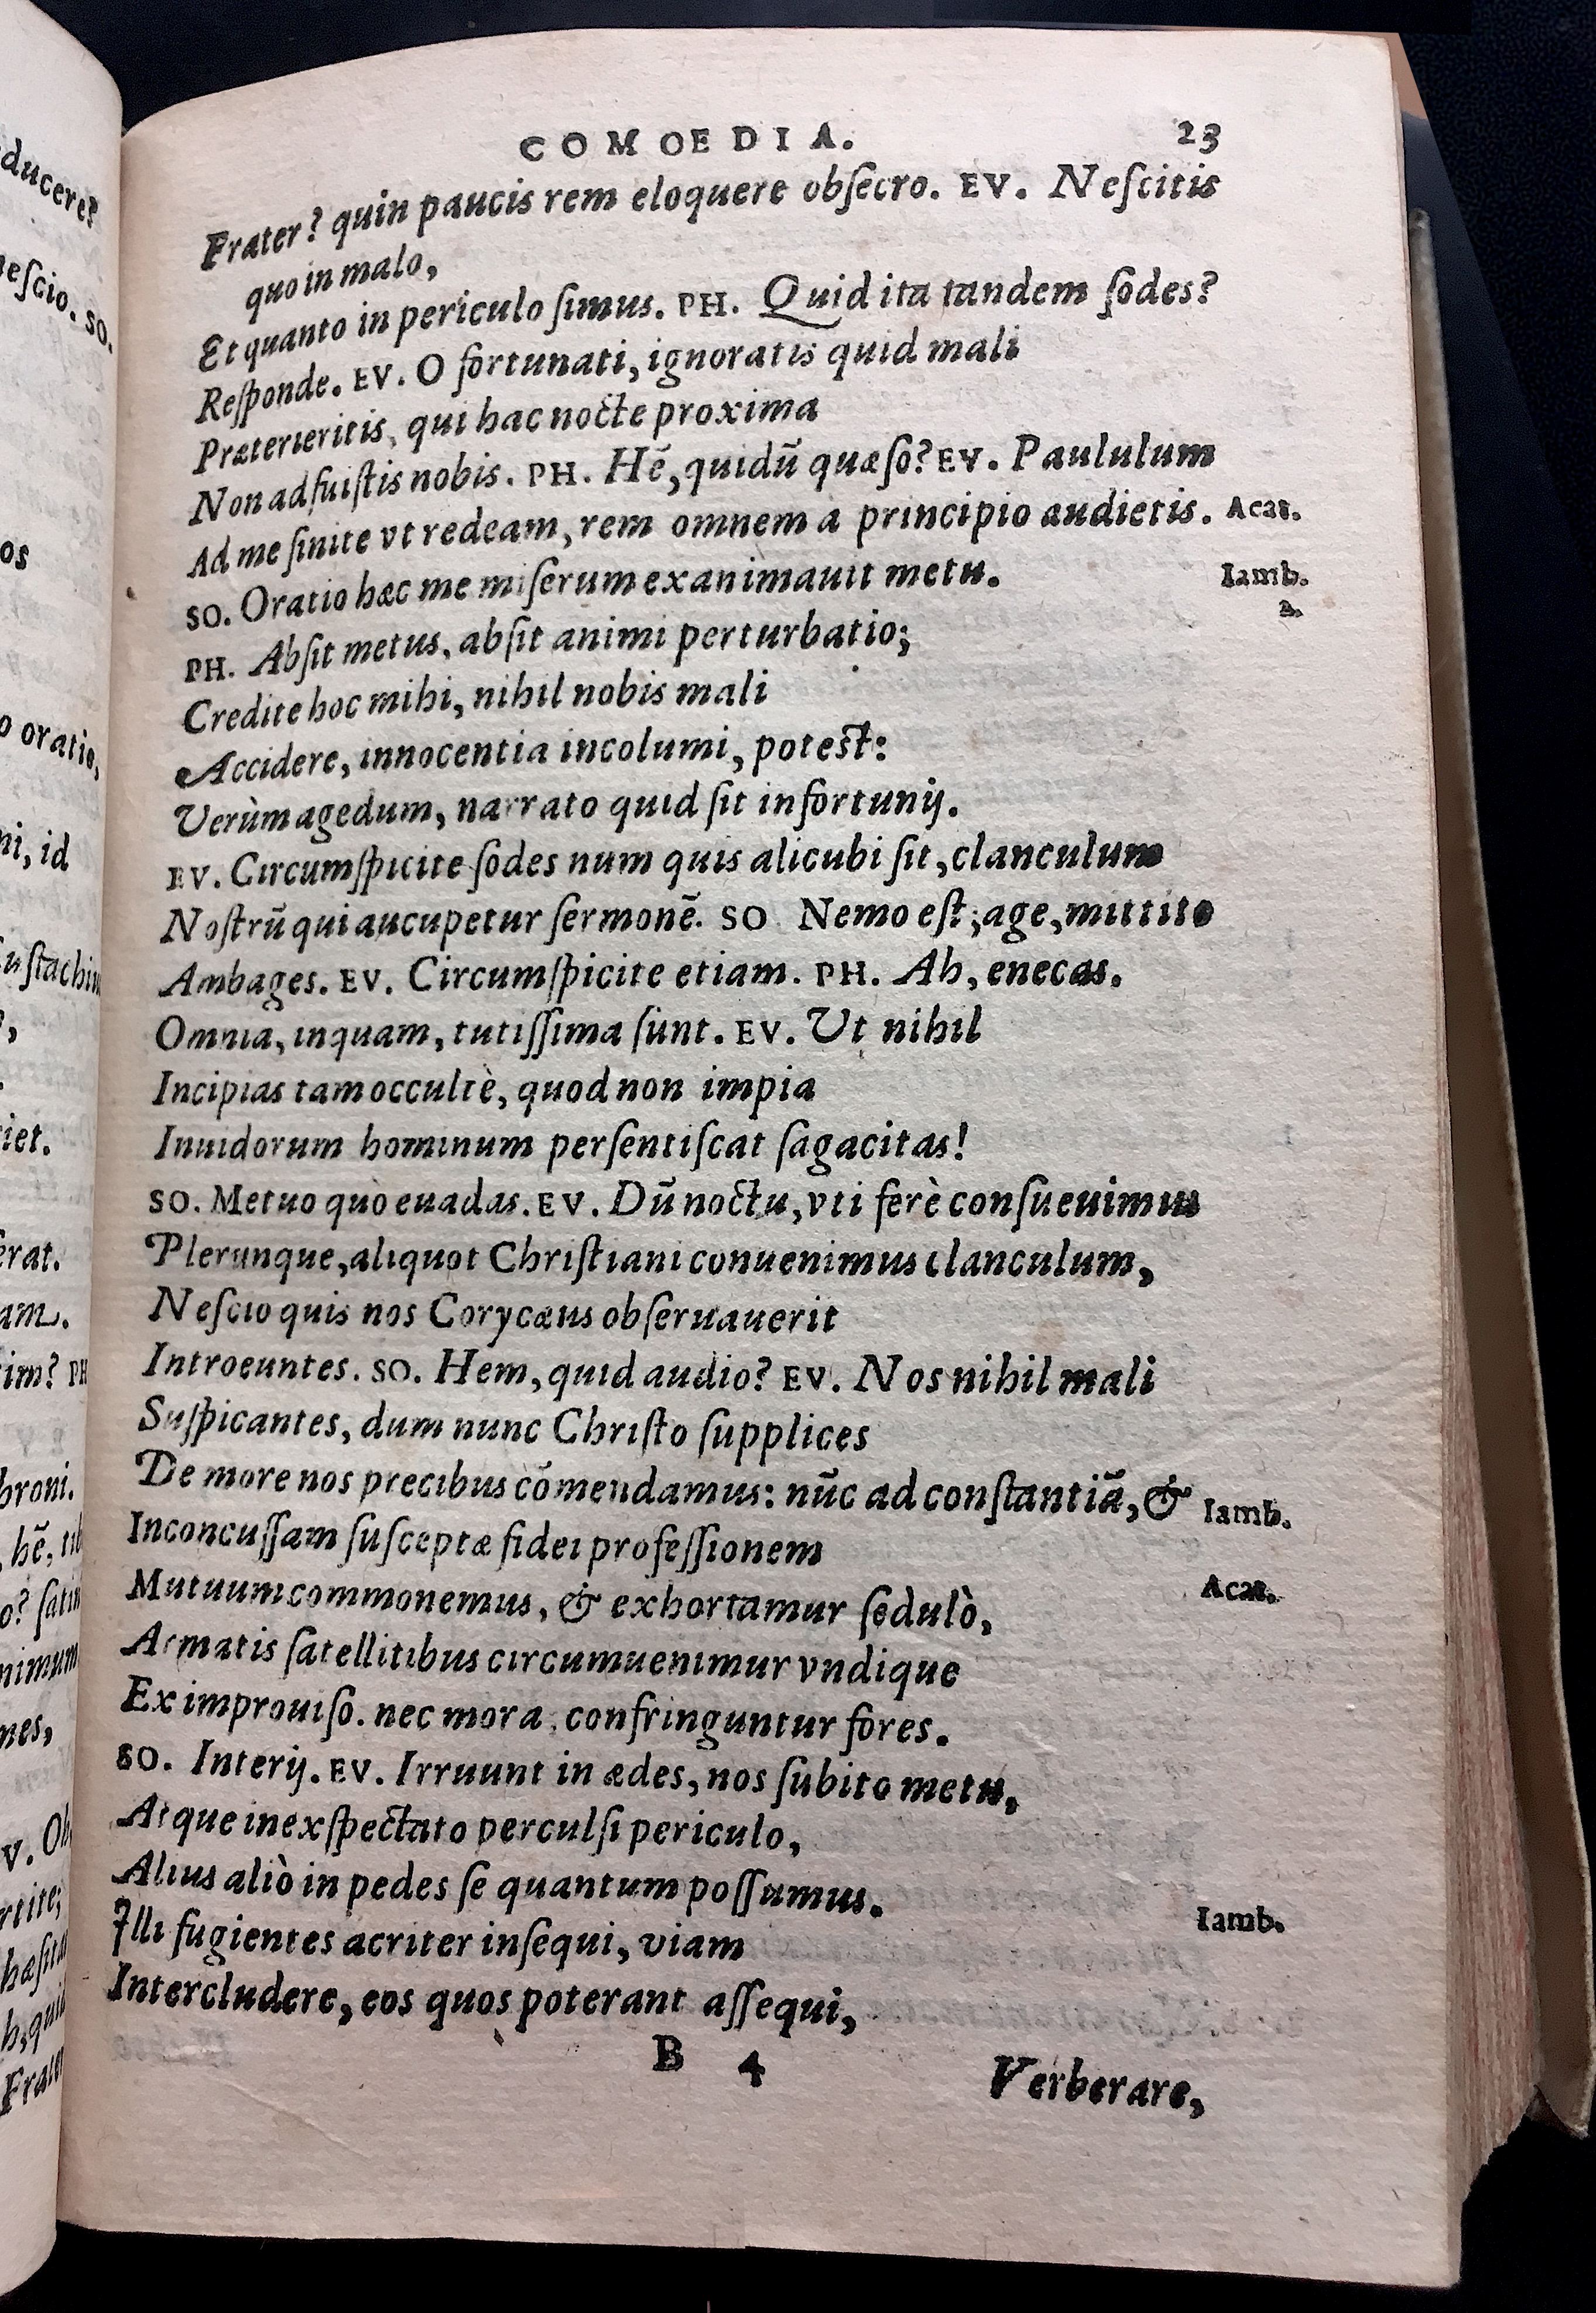 COMOEDIA. 23
Frater? quin paucis rem eloquere obſecro. EV. Neſcitis
quo in malo,
Et quanto in periculo ſimus. PH. Quid ita tandem ſodes?
Reſponde. EV. O fortunati, ignoratis quid mali
Præterieritis, qui hac nocte proxima
Non adfuiſtis nobis. PH. Hē, quidū quæſo? EV. Paululum
Ad me ſinite vt redeam, rem omnem à principio audietis. Acat.
SO. Oratio hæc me miſerum exanimauit metu. Iamb.
2.
PH. Abſit metus, abſit animi perturbatio;
Credite hoc mihi, nihil nobis mali
Accidere, innocentia incolumi, poteſt:
Verùm agedum, narrato quid ſit infortunij.
EV. Circumſpicite ſodes num quis alicubi ſit, clanculum
Noſtrū qui aucupetur ſermonē. SO Nemo eſt; age, mittito
Ambages. EV. Circumſpicite etiam. PH. Ah, enecas.
Omnia, inquam, tutiſſima ſunt. EV. Vt nihil
Incipias tam occultè, quod non impia
Inuidorum hominum perſentiſcat ſagacitas!
SO. Metuo quò euadas. EV. Dū noctu, vti ferè conſueuimus
Plerunque, aliquot Chriſtiani conuenimus clanculum,
Neſcio quis nos Corycæus obſeruauerit
Introeuntes. SO. Hem, quid audio? EV. Nos nihil mali
Suſpicantes, dum nunc Chriſto ſupplices
De more nos precibus cōmendamus: nūc ad conſtantiā, & Iamb.
Inconcuſſam ſuſceptæ fidei profeſſionem
Mutuum commonemus, & exhortamur ſedulò, Acat.
Armatis ſatellitibus circumuenimur vndique
Ex improuiſo. nec mora, confringuntur fores.
SO. Interij. EV. Irruunt in ædes, nos ſubito metu,
Atque inexſpectato perculſi periculo,
Alius aliò in pedes ſe quantum poſſumus.
Illi fugientes acriter inſequi, viam Iamb.
Intercludere, eos quos poterant aſſequi,
B 4
Verberare,